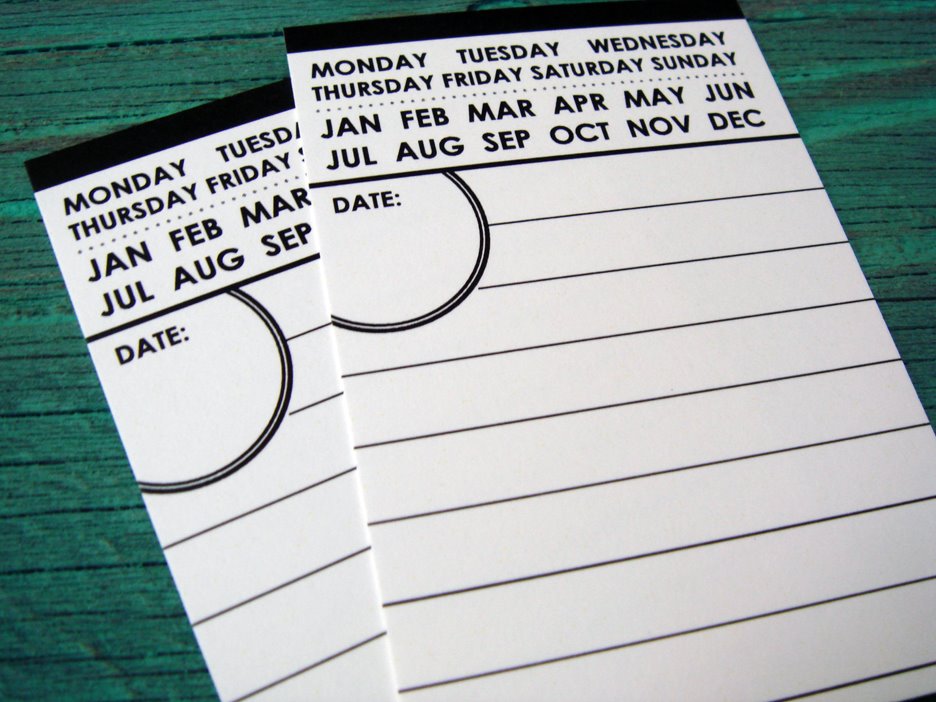 MONDAY TUESDAY WEDNESDAY
THURSDAY FRIDAY SATURDAY SUNDAY
JAN FEB MAR APR MAY JUN
JUL AUG SEP OCT NOV DEC
DATE:
MONDAY TUESDA
THURSDAY FRIDAY
JAN FEB MAR
JUL AUG SEP
DATE: